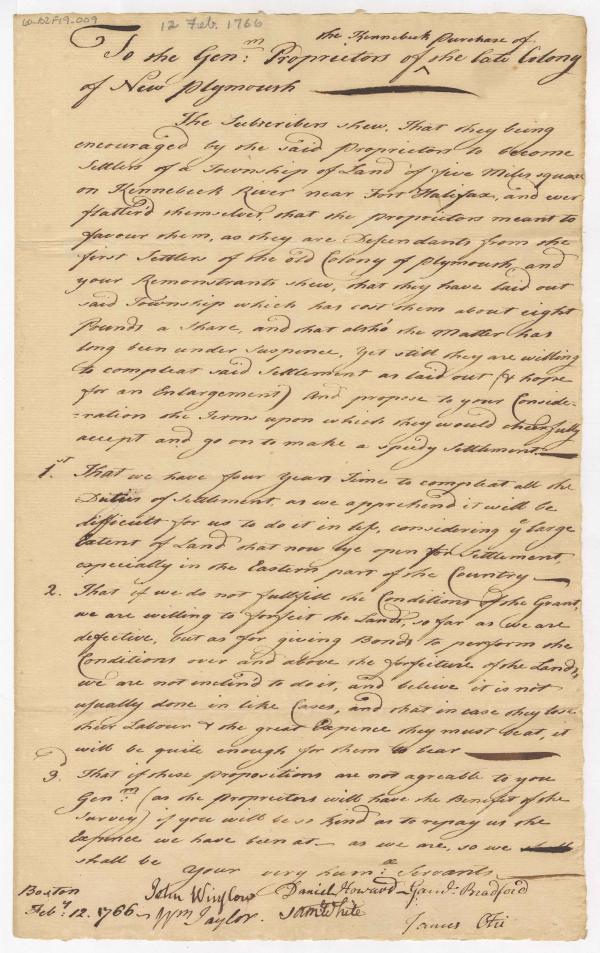 60-B2F19-009
12 Feb. 1766
the Kennebeck Purchase of
To the Gen:m Proprietors of ^ the late Colony
of New Plymouth
The Subscribers shew, That they being
encouraged by the said Proprietors to become
Settlers of a Township of Land of five Miles square
on Kennebeck River near Fort Halifax, and ever
flatter'd themselves, that the proprietors meant to
favour them, as they are Defendants from the
first Settlers of the old Colony of Plymouth, and
your Remonstrants shew, that they have laid out
said Township which has cost them about eight
Pounds a Share, and that altho' the Matter has
long been under Suspence, Yet still they are willing
to compleat said Settlement as laid out (& hope
for an Enlargement) And propose to your Conside=
=ration the Terms upon which they would chearfully
accept and go on to make a speedy Settlement
1.st That we have four Years Time to compleat all the
Duties of Settlement, as we apprehend it will be
difficult for us to do it in less, considering ye large
Extent of Land that now lye open for Settlement,
especially in the Eastern part of the Country
2. That if we do not fullfill the Conditions of the Grant,
we are willing to forfeit the Lands, so far as we are
defective, but as for giving Bonds to perform the
Conditions over and above the forfeiture of the Lands,
we are not inclin'd to do it, and believe it is not
usually done in like Cases, and that in case they lose
their Labour & the great Expence they must be at, it
will be quite enough for them to bear
3.d That if these propositions are not agreable to you
Gen:m (as the Proprietors will have the Benefit of the
Survey) if you will be so kind as to repay us the
Expence we have been at – as we are, so we
shall be
Your very hum:e Servants
Boston
Feby. 12. 1766
John Winslow Daniel Howard Gam: Bradford
Wm Taylor. Sam White James Otis